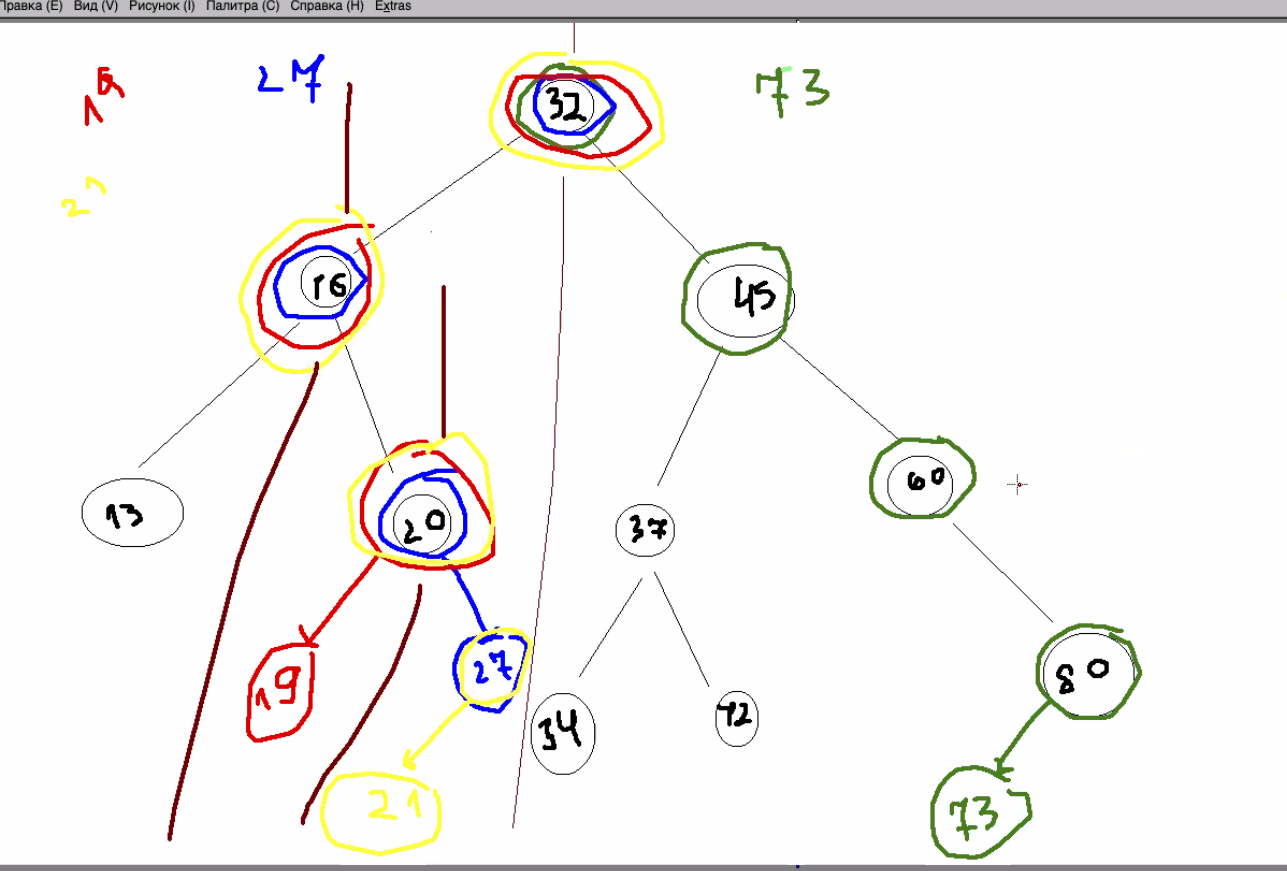 Правка (E) Вид (V) Рисунок (I) Палитра (C) Справка (H) Extras
19
27
32
73
16
45
13
20
37
60
19
27
34
42
80
21
73